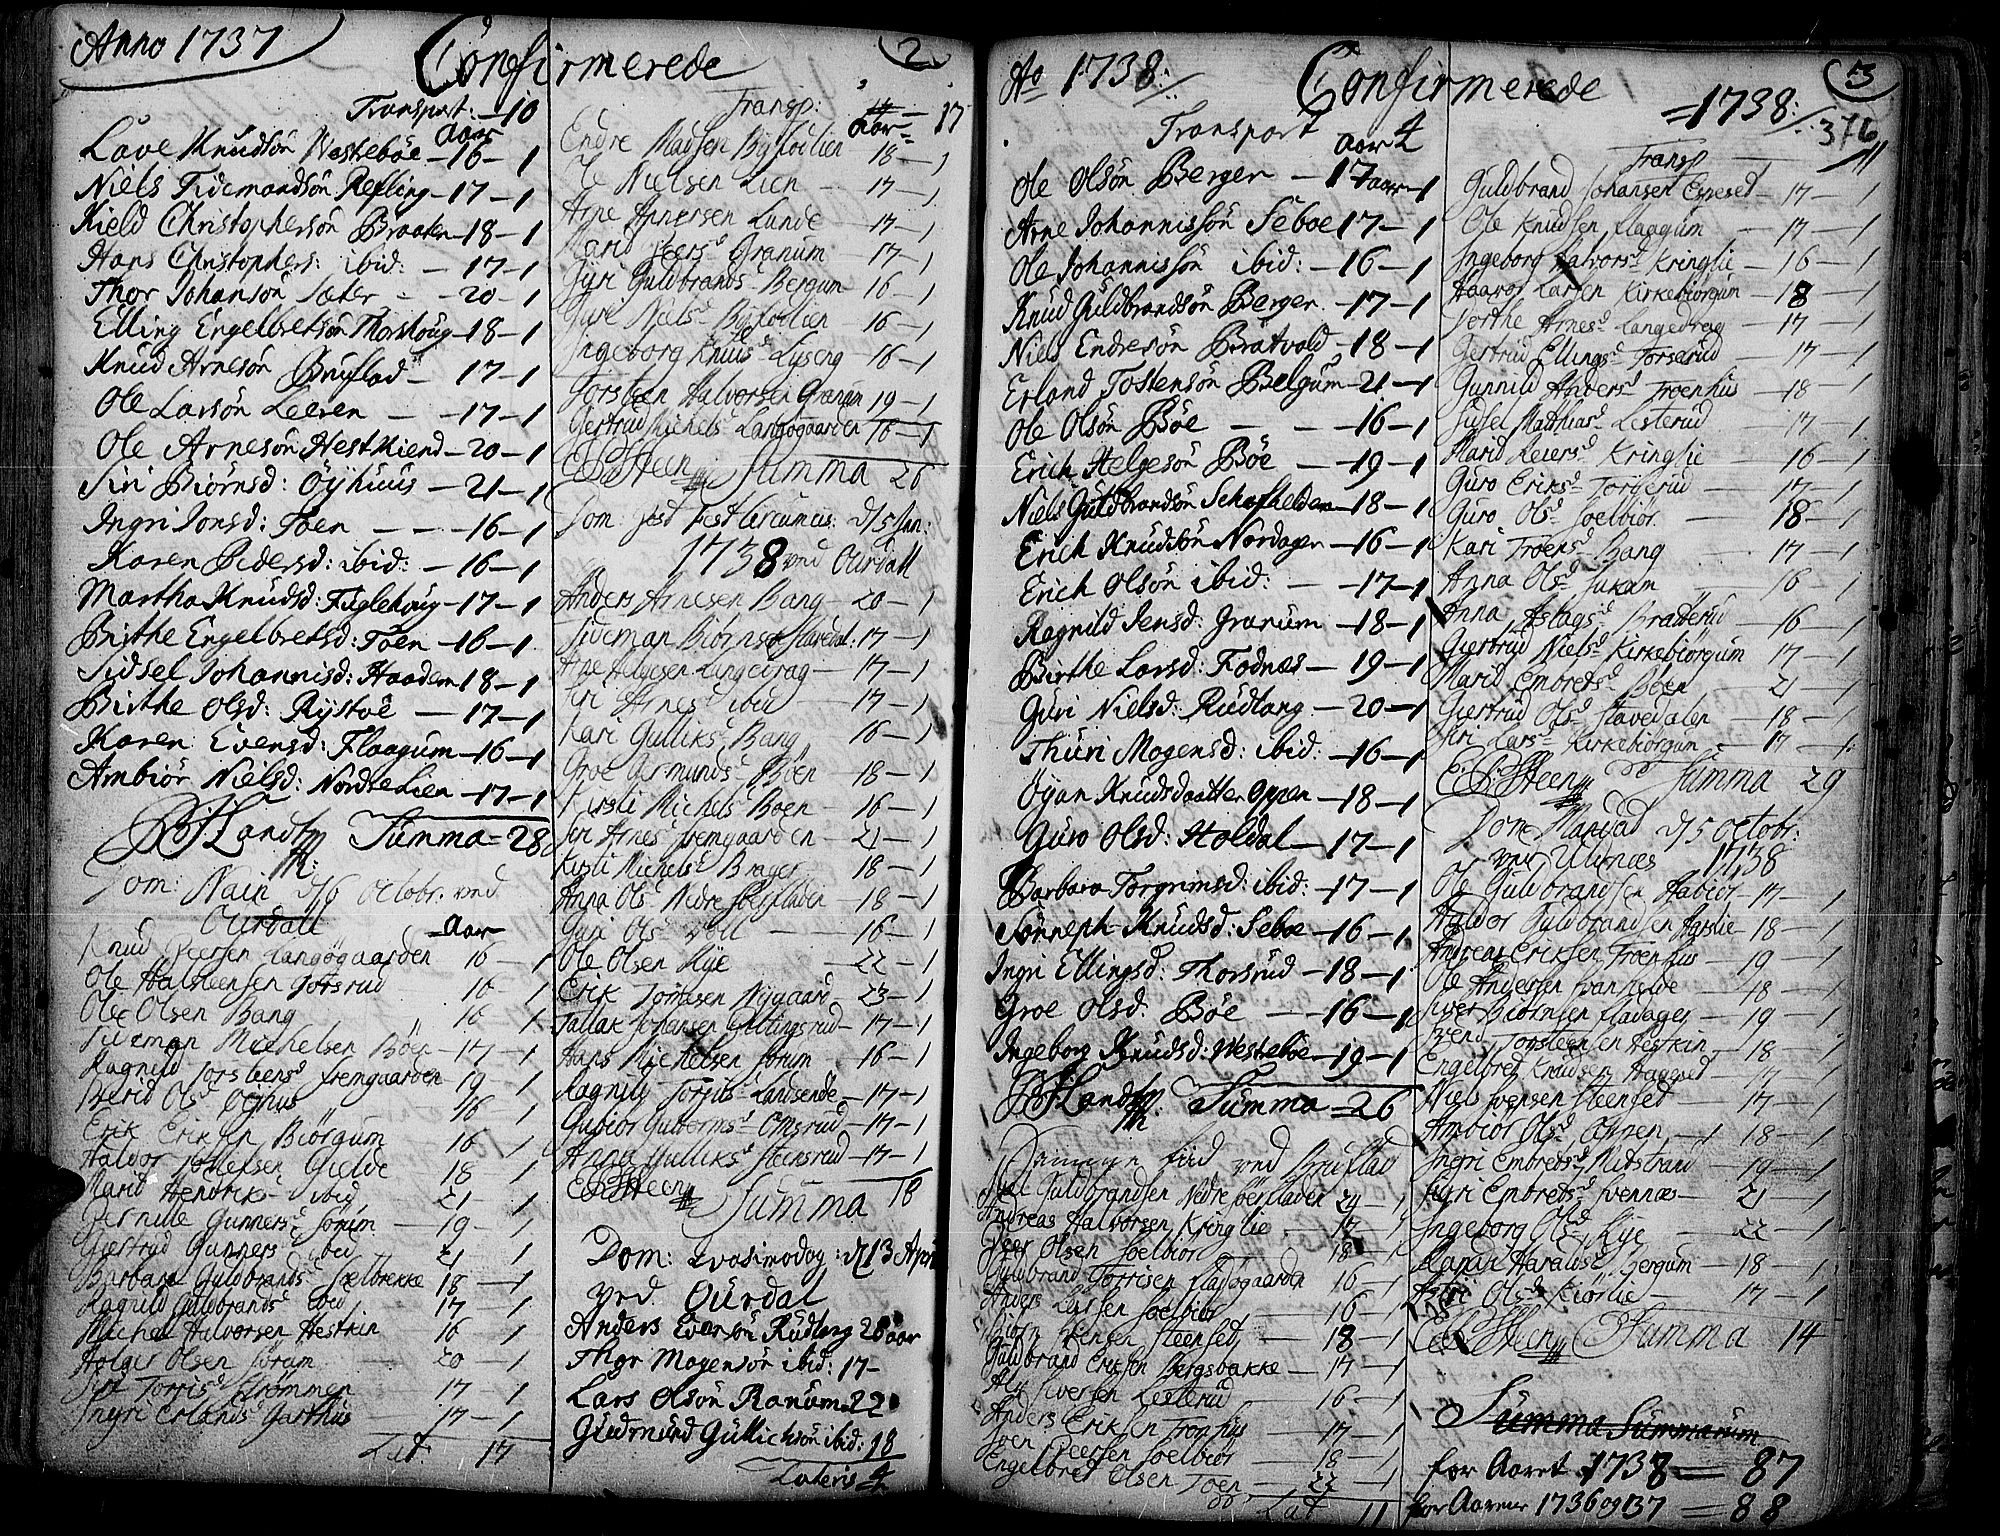 Anno 1737
Confirmerede
2
Transport: — 10
Aar
Lave Knudsön Westebøe — 16 — 1
Niels Tidemandsön Refling — 17 — 1
Kield Christophersön Braaten — 18 — 1
Hans Christophers: ibid: — 17 — 1
Thor Johansön Sæter — 20 — 1
Elling Engelbretsön Thorshoug — 18 — 1
Knud Arnesön Bruflad — 17 — 1
Ole Larsön Leeren — 17 — 1
Ole Arnesön Hestkiend — 20 — 1
Siri Biörnsd: Öyhuus — 21 — 1
Ingri Jonsd: Toen — 16 — 1
Karen Pedersd: ibid: — 16 — 1
Martha Knudsd: Fuglehoug — 17 — 1
Birthe Engelbretsd: Toen — 16 — 1
Sidsel Johannisd: Haadem — 18 — 1
Birthe Olsd: Rÿstøe — 17 — 1
Karen Evensd: Flaagum — 16 — 1
Ambiör Nielsd: Nordre Lien — 17 — 1
Summa = 28
Dom: Nain d/6 Octobr: ved
Ourdall Aar
Knud Peersen Langögaarden 16 — 1
Ole Halsteensen Torsrud 16 — 1
Ole Olsen Bang 16 — 1
Tideman Michelsen Böen — 17 — 1
Ragnild Torsteensd Fremgaarden 19 — 1
Berid Olsd Öÿhus 16 — 1
Erik Eriksen Biörgum 16 — 1
Haldor Tollefsen Gielde 18 — 1
Marid Hendriksd ibid 21 — 1
Pernille Gunnersd Sörum — 19 — 1
Giertrud Gunnersd ibid 21 — 1
Barbara Guldbrandsd Sælbrekke 18 — 1
Ragnild Guldbrandsd ibid 17 — 1
Michel Halvorsen Hestkin 16 — 1
Holger Olsen Sörum 20 — 1
Siri Torrisd Strömmen 17 — 1
Ingri Erlandsd Garthus 17 — 1
Lat: 17
Transp: — 17
Aar
Endre Madsen Byfodlien 18 — 1
Ole Nielsen Lien — 17 — 1
Arne Arnersen Lunde — 17 — 1
Marid Peersd Granum — 17 — 1
Siri Guldbrandsd Bergum 16 — 1
Guri Nielsd Byfodlien 16 — 1
Ingeborg Knudsd Lÿseng — 16 — 1
Torsteen Halvorsen Granum 19 — 1
Giertrud Michelsd Langögaarden 16 — 1
E P Steen Summa 26
Dom: post Fest Circumcis: d/5 Jan:
1738 ved Ourdall
Anders Arnesen Bang — 20 — 1
Tideman Biörnsen Stavedal: 17 — 1
Arne Helgesen Langedrag — 17 — 1
Siri Arnesd ibid — 17 — 1
Kari Gulliksd Bang 16 — 1
Groe Germundsd Böen — 18 — 1
Kirsti Michelsd Boen — 16 — 1
Siri Arnesd Fremgaarden — 21 — 1
Kirsti Michelsd Brager 18 — 1
Anna Olsd Nedre Søerfladen — 18 — 1
Guri Olsd Voll — 16 — 1
Ole Olsen Rÿe — 22 — 1
Erik Jonasen Nÿgaard — 23 — 1
Tallak Johansen Ellingsrud — 17 — 1
Hans Michelsen Sörum — 16 — 1
Ragnild Torgusd Landsende — 17 — 1
Gubiör Guttormsd Omsrud — 17 — 1
Anna Gulliksd Steensrud — 17 — 1
E P Steen Summa 18
Dom: Qvasimodog: d/13 April
ved Ourdal
Anders Evarsön Rudlang 28 aar
Thor Mogensön ibid: 17 —
Lars Olsön Ranum 22
Gudmund Gullichsön ibid: 18
Lateris 4
Ao 1738:
Confirmerede
3
= 1738:
376
Transport Aar 4
Ole Olsön Berger — 17 aar — 1
Arne Johannissön Seboe 17 — 1
Ole Johannissön ibid: — 16 — 1
Knud Guldbrandsön Berger 17 — 1
Niels Endresön Bratvold — 18 — 1
Erland Tostensön Belgum — 21 — 1
Ole Olsön Böe — 16 — 1
Erich Helgesön Böe — 19 — 1
Niels Guldbrandsön — 18 — 1
Erich Knudsön Nordager — 16 — 1
Erich Olsön ibid: — 17 — 1
Ragnild Jensd: Granum — 18 — 1
Birthe Larsd: Fodnæs — 19 — 1
Guri Nielsd: Rudlang — 20 — 1
Thuri Mogensd: ibid: — 16 — 1
Öyan Knudsdaatter Oppen — 18 — 1
Guro Olsd: Holdal — 17 — 1
Barbara Torgrimsd: ibid: — 17 — 1
Sönneph Knudsd: Seboe — 16 — 1
Ingri Ellingsd: Thorsrud — 18 — 1
Groe Olsd: Böe — 16 — 1
Ingeborg Knudsd: Westeböe — 19 — 1
Summa = 26
ved Bruflad
Guldbrandsen Nedre Søerfladen 24 — 1
Andreas Halvorsen Kringlie — 17 — 1
Peer Olsen Soelbior — 18 — 1
Guldbrand Torrisen Fladögaarden 16 — 1
Anders Larsen Soelbior — 16 — 1
Biörn Iversen Steenset — 18 — 1
Guldbrand Eriksen Bergsbakke — 17 — 1
Alf Siversen Lesterud — 16 — 1
Anders Eriksen Tronhus — 17 — 1
Joen Peersen Soelbior — 18 — 1
Engelbret Olsen Toen — 22 — 1
Lat 11
Transp — 11
Guldbrand Johansen Egreset — 17 — 1
Ole Knudsen Flaagum — 17 — 1
Ingeborg Halvorsd Kringlie — 16 — 1
Haavor Larsen Kirkebiorgum — 18 — 1
Berthe Arnesd Langedrag — 17 — 1
Giertrud Ellingsd Torserud — 17 — 1
Gunnild Andersd Troenhus — 18 — 1
Sidsel Mathiasd Lesterud — 17 — 1
Marid Reiersd Kringlie — 16 — 1
Guro Eriksd Torgerud — 17 — 1
Guro Olsd Soelbior — 18 — 1
Kari Troensd Bang — 17 — 1
Anna Olsd Jukam — 16 — 1
Anna Aslagsd Bratterud — 16 — 1
Giertrud Nielsd Kirkebiörgum 17 — 1
Marid Embretsd Böen 21 — 1
Giertrud Olsd Stavedalen — 18 — 1
Siri Larsd Kirkebiörgum — 17 — 1
E P Steen Summa 29
Dom d/5 Octobr:
ved Ulunæs 1738
Ole Guldbrandsen Habior — 17 — 1
Haldor Guldbrandsen Hastlie — 18 — 1
Andreas Eriksen Troenhus — 19 — 1
Ole Andersen — 18 — 1
Iver Biörnsen Fladager — 19 — 1
Svend Torsteensen Hestkin — 18 — 1
Engelbret Knudsen Hageset — 17 — 1
Niels Svensen Steenset — 17 — 1
Ambior Olsd Oppen — 18 — 1
Ingri Embretsd Midstrand — 19 — 1
Siri Embretsd Svennæs — 21 — 1
Ingeborg Olsd Rÿe — 22 — 1
Randi Haraldsd Bergum — 18 — 1
Astri Olsd Kiörlie — 17 — 1
E P Steen Summa 14
Summa Summarum
for Aaret 1738 = 87
for Aarene 1736 og 37 = 88